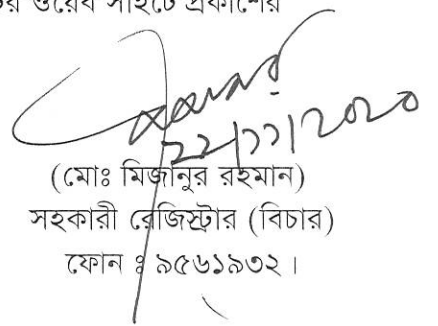 ওয়েব সাইটে প্রকাশের
২২/১১/২০২০
(মোঃ মিজানুর রহমান)
সহকারী রেজিস্ট্রার (বিচার)
ফোন ঃ ৯৫৬১৯৩২।